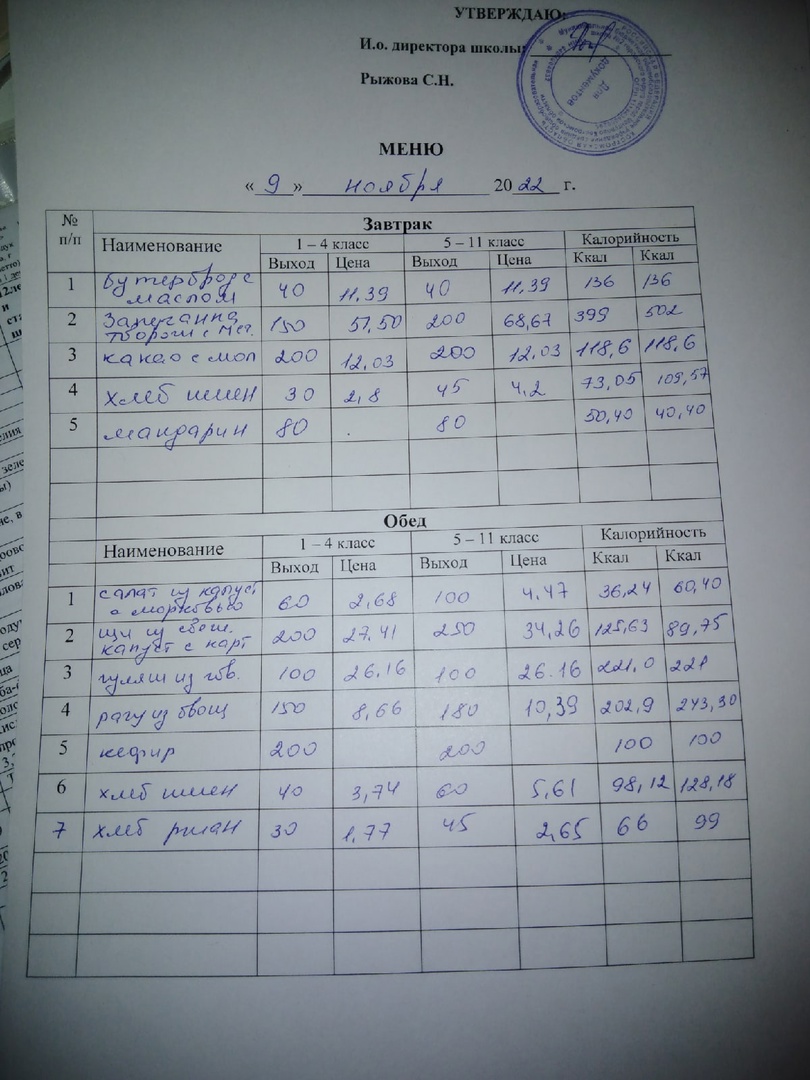 УТВЕРЖДАЮ:
И.о. директора школы:
Рыжова С.Н.
Для документов
МЕНЮ
« 9 » ноября 20 22 г.
№ п/п Завтрак
Наименование 1 – 4 класс 5 – 11 класс Калорийность
Выход Цена Выход Цена Ккал Ккал
1 бутерброд с маслом 40 11,39 40 11,39 136 136
2 Запеканка творож с 150 57,50 200 68,67 399 502
3 какао с мол 200 12,03 200 12,03 118,6 118,6
4 хлеб пшен 30 2,8 45 4,2 73,05 109,57
5 мандарин 80 80 50,40 40,40
Обед
Наименование 1 – 4 класс 5 – 11 класс Калорийность
Выход Цена Выход Цена Ккал Ккал
1 салат из капуст с морковью 60 2,68 100 4,47 36,24 60,40
2 щи из свеж. капуст с карт 200 27,41 250 34,26 125,63 89,75
3 гуляш из гов. 100 26,16 100 26.16 221,0 221
4 рагу из овощ 150 8,66 180 10,39 202,9 243,30
5 кефир 200 200 100 100
6 хлеб пшен 40 3,74 60 5,61 98,12 128,18
7 хлеб ржан 30 1,77 45 2,65 66 99